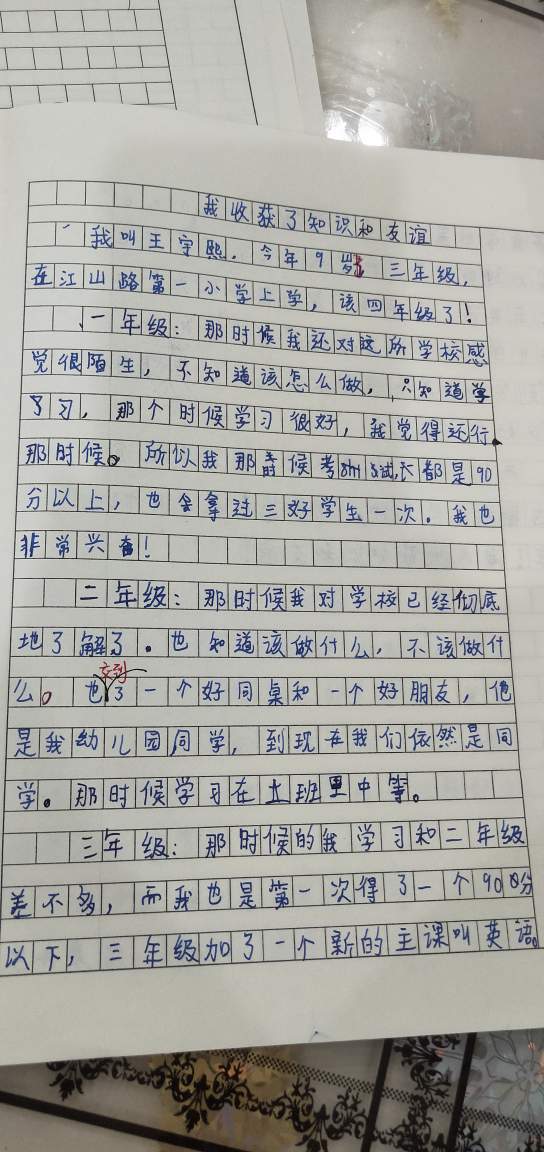 我收获了知识和友谊
我叫王宇熙,今年9岁,三年级,
在江山路第一小学上学,该四年级了!
一年级:那时候我还对这所学校感
觉很陌生,不知道该怎么做,只知道学
习,那个时候学习很好,我觉得还行
那时候。所以我那时候考试都是90
分以上,也会拿过三好学生一次。我也
非常兴奋!
二年级:那时候我对学校已经彻底
地了解了。也知道该做什么,不该做什
么。也交到了一个好同桌和一个好朋友,他
是我幼儿园同学,到现在我们依然是同
学。那时候学习在班里中等。
三年级:那时候的我学习和二年级
差不多,而我也是第一次得了一个90分
以下,三年级加了一个新的主课叫英语。